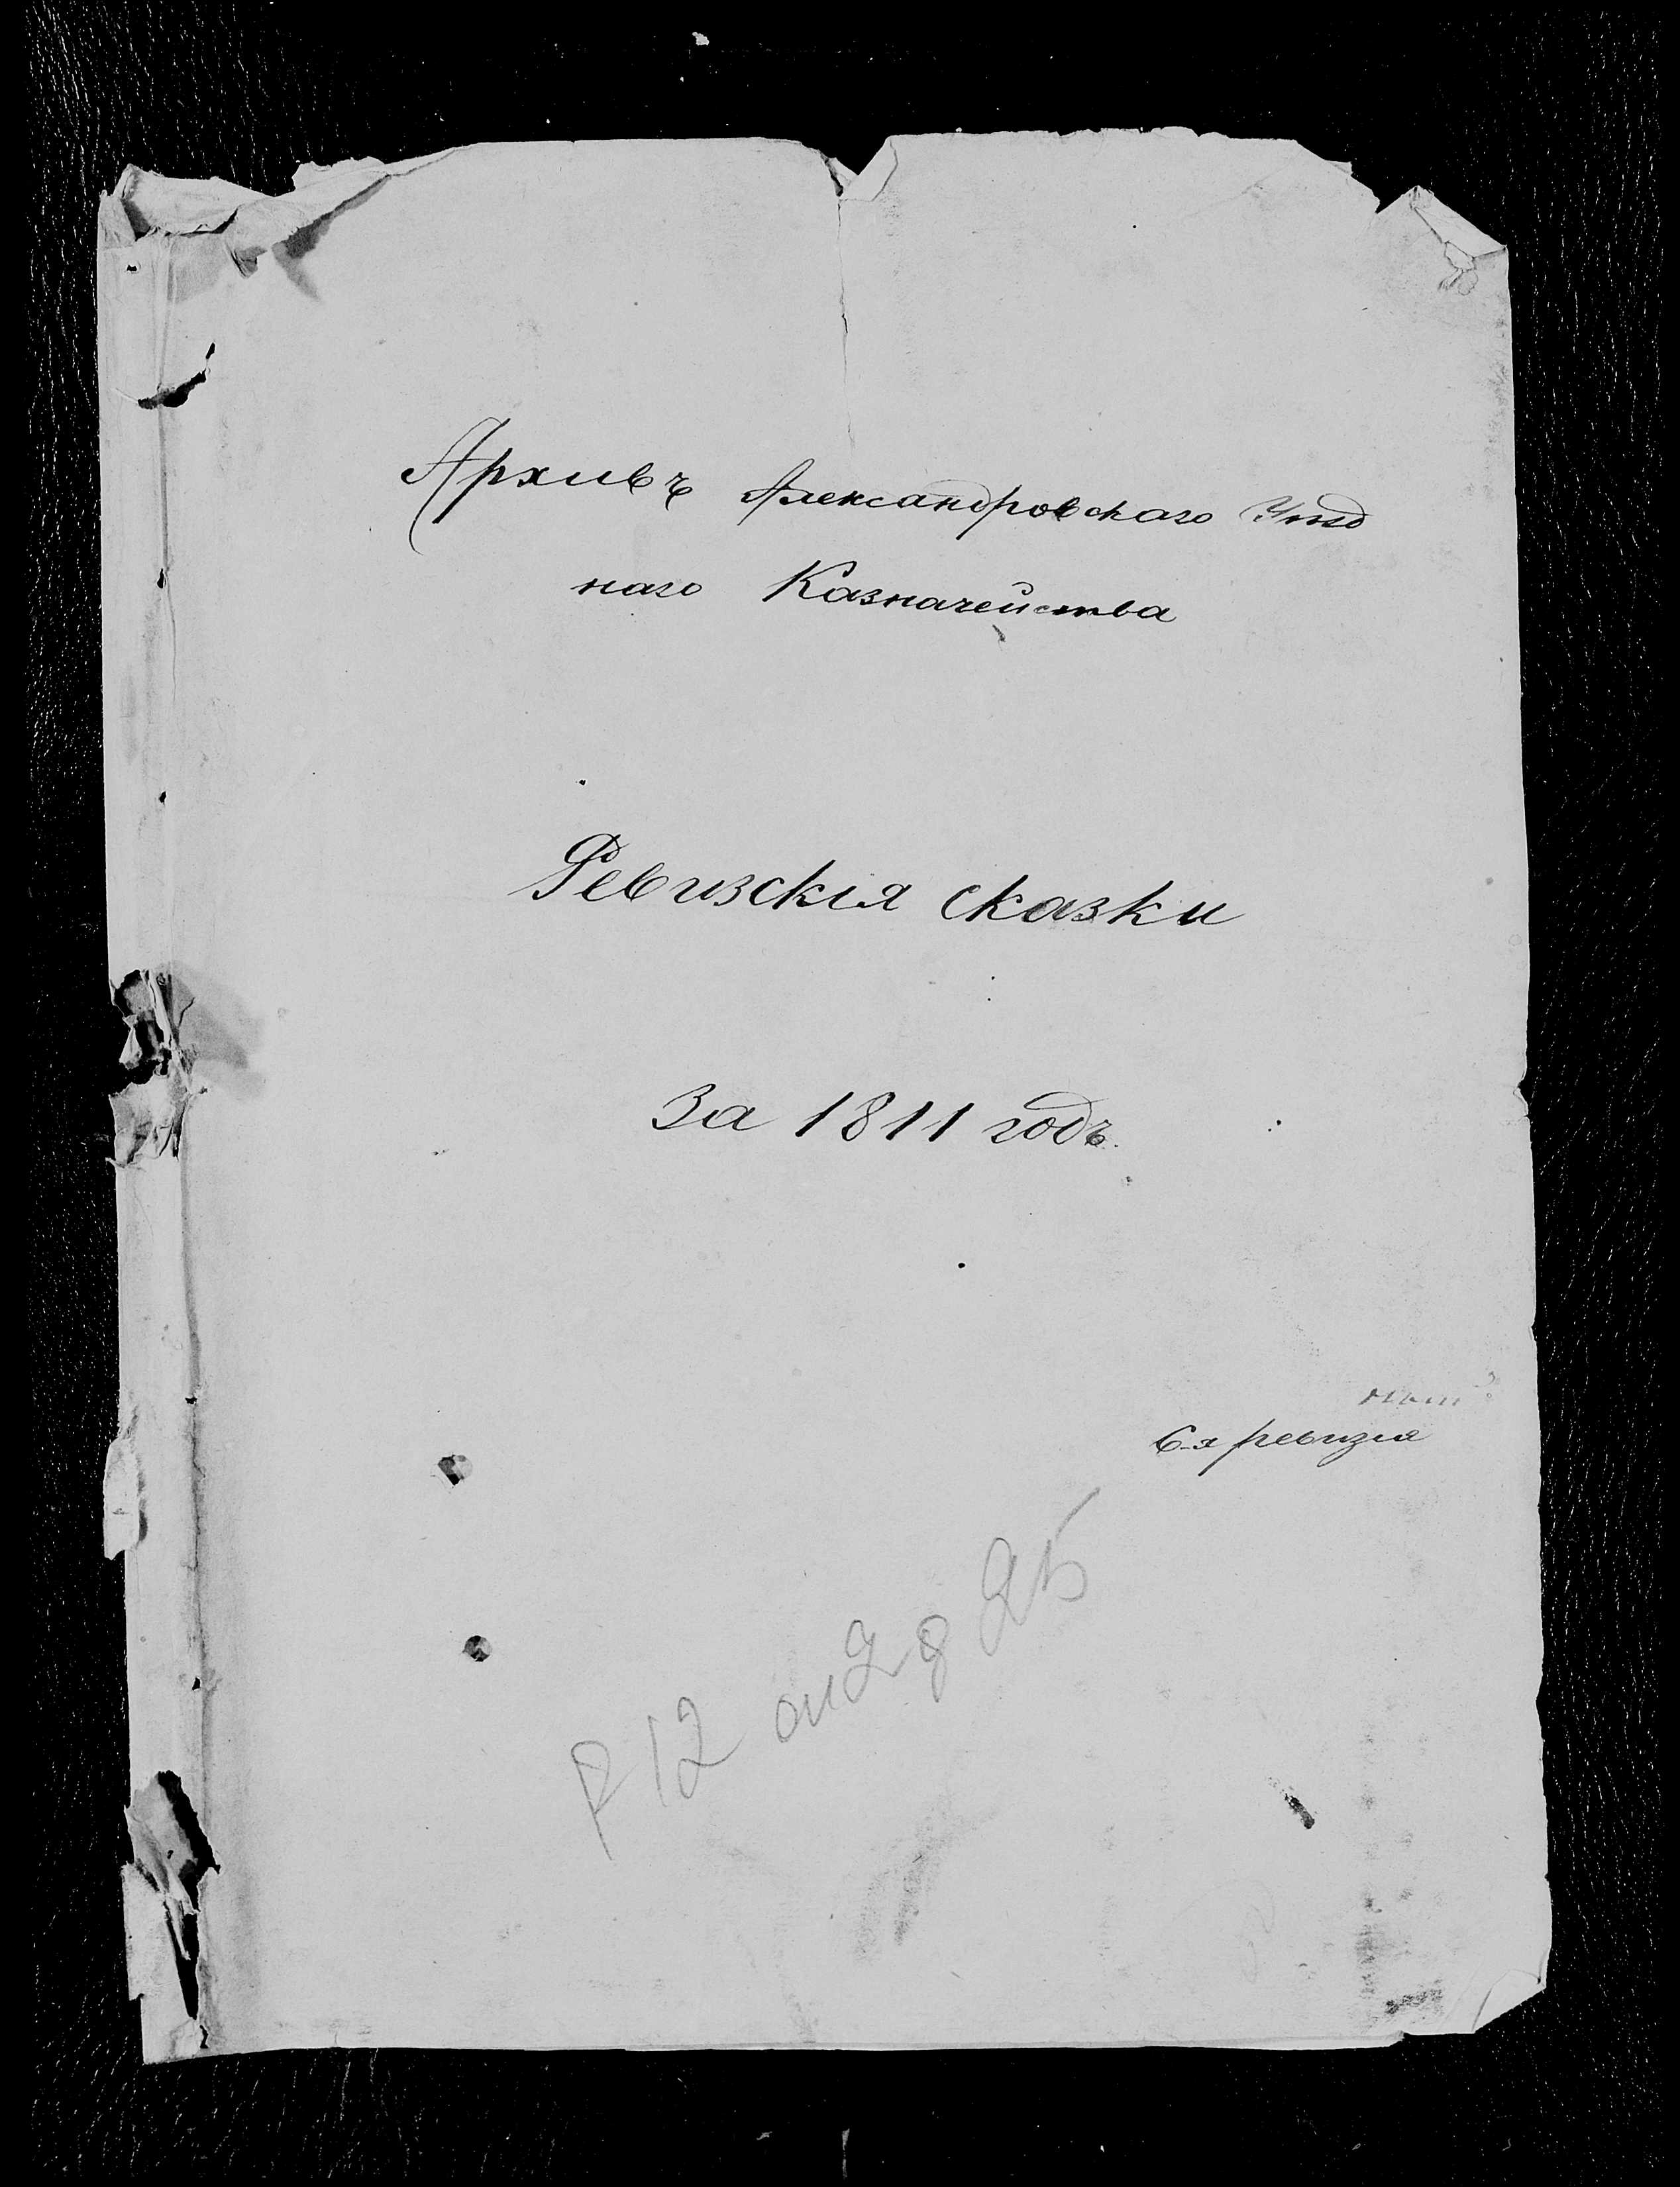 Архивъ Александровскаго Уѣзд
наго Казначейства
Ревизскія сказки
За 1811 годъ.
6-я ревизія
Р 12 оп 2 д 25